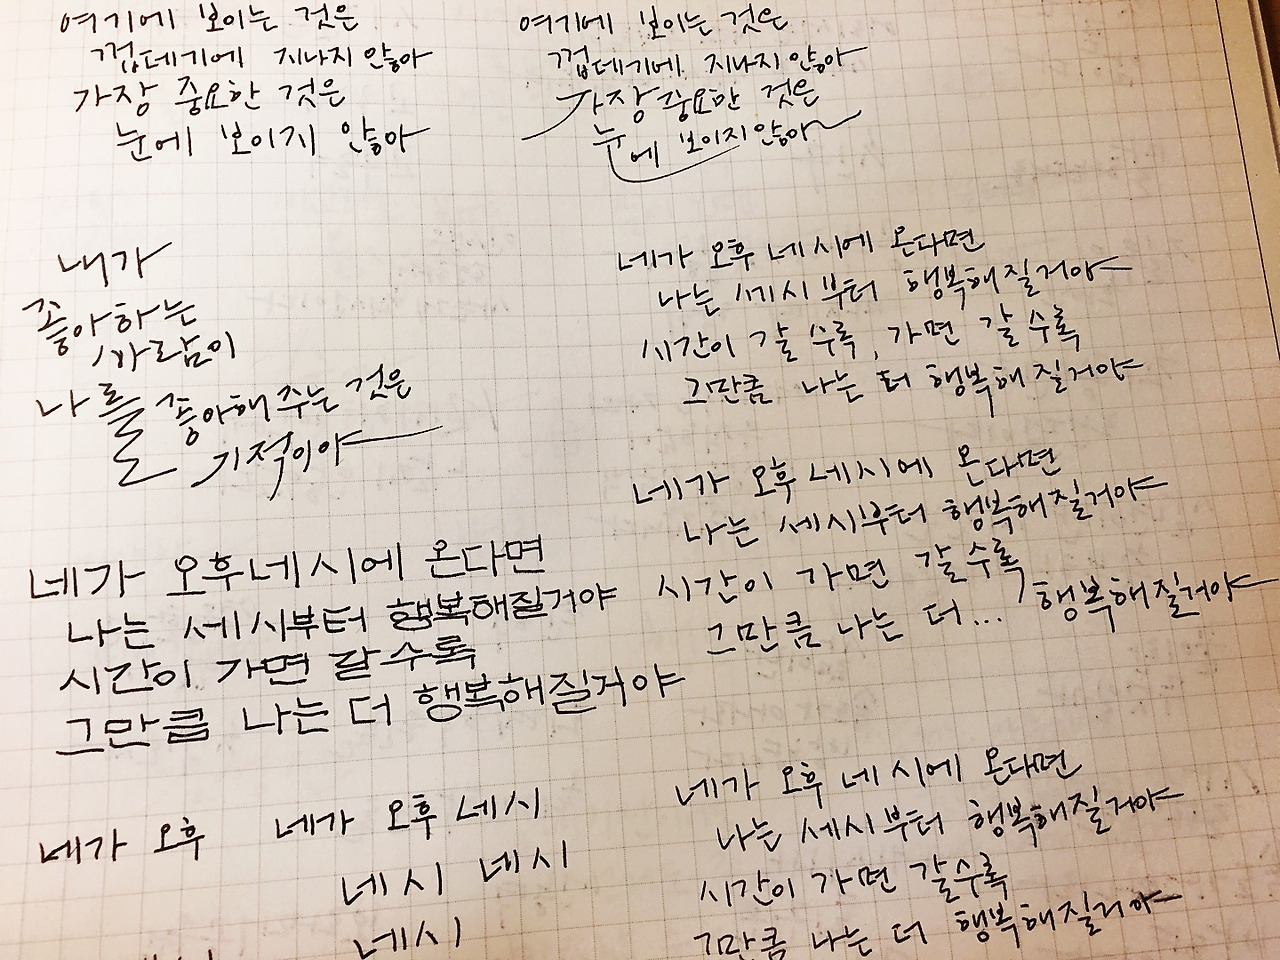 여기에 보이는 것은
껍데기에 지나지 않아
가장 중요한 것은
눈에 보이지 않아
여기에 보이는 것은
껍데기에 지나지 않아
가장 중요한 것은
눈에 보이지 않아
내가
좋아하는
사람이
나를 좋아해 주는 것은
기적이야
네가 오후 네 시에 온다면
나는 세시부터 행복해질거야
시간이 갈 수록, 가면 갈 수록
그만큼 나는 더 행복해 질거야
네가 오후 네시에 온다면
나는 세시부터 행복해질거야
시간이 가면 갈수록
그만큼 나는 더... 행복해질거야
네가 오후네시에 온다면
나는 세시부터 행복해질거야
시간이 가면 갈수록
그만큼 나는 더 행복해질거야
네가 오후
네가 오후 네시
네시 네시
네시
네가 오후 네 시에 온다면
나는 세시부터 행복해질거야
시간이 가면 갈수록
그만큼 나는 더 행복해질거야